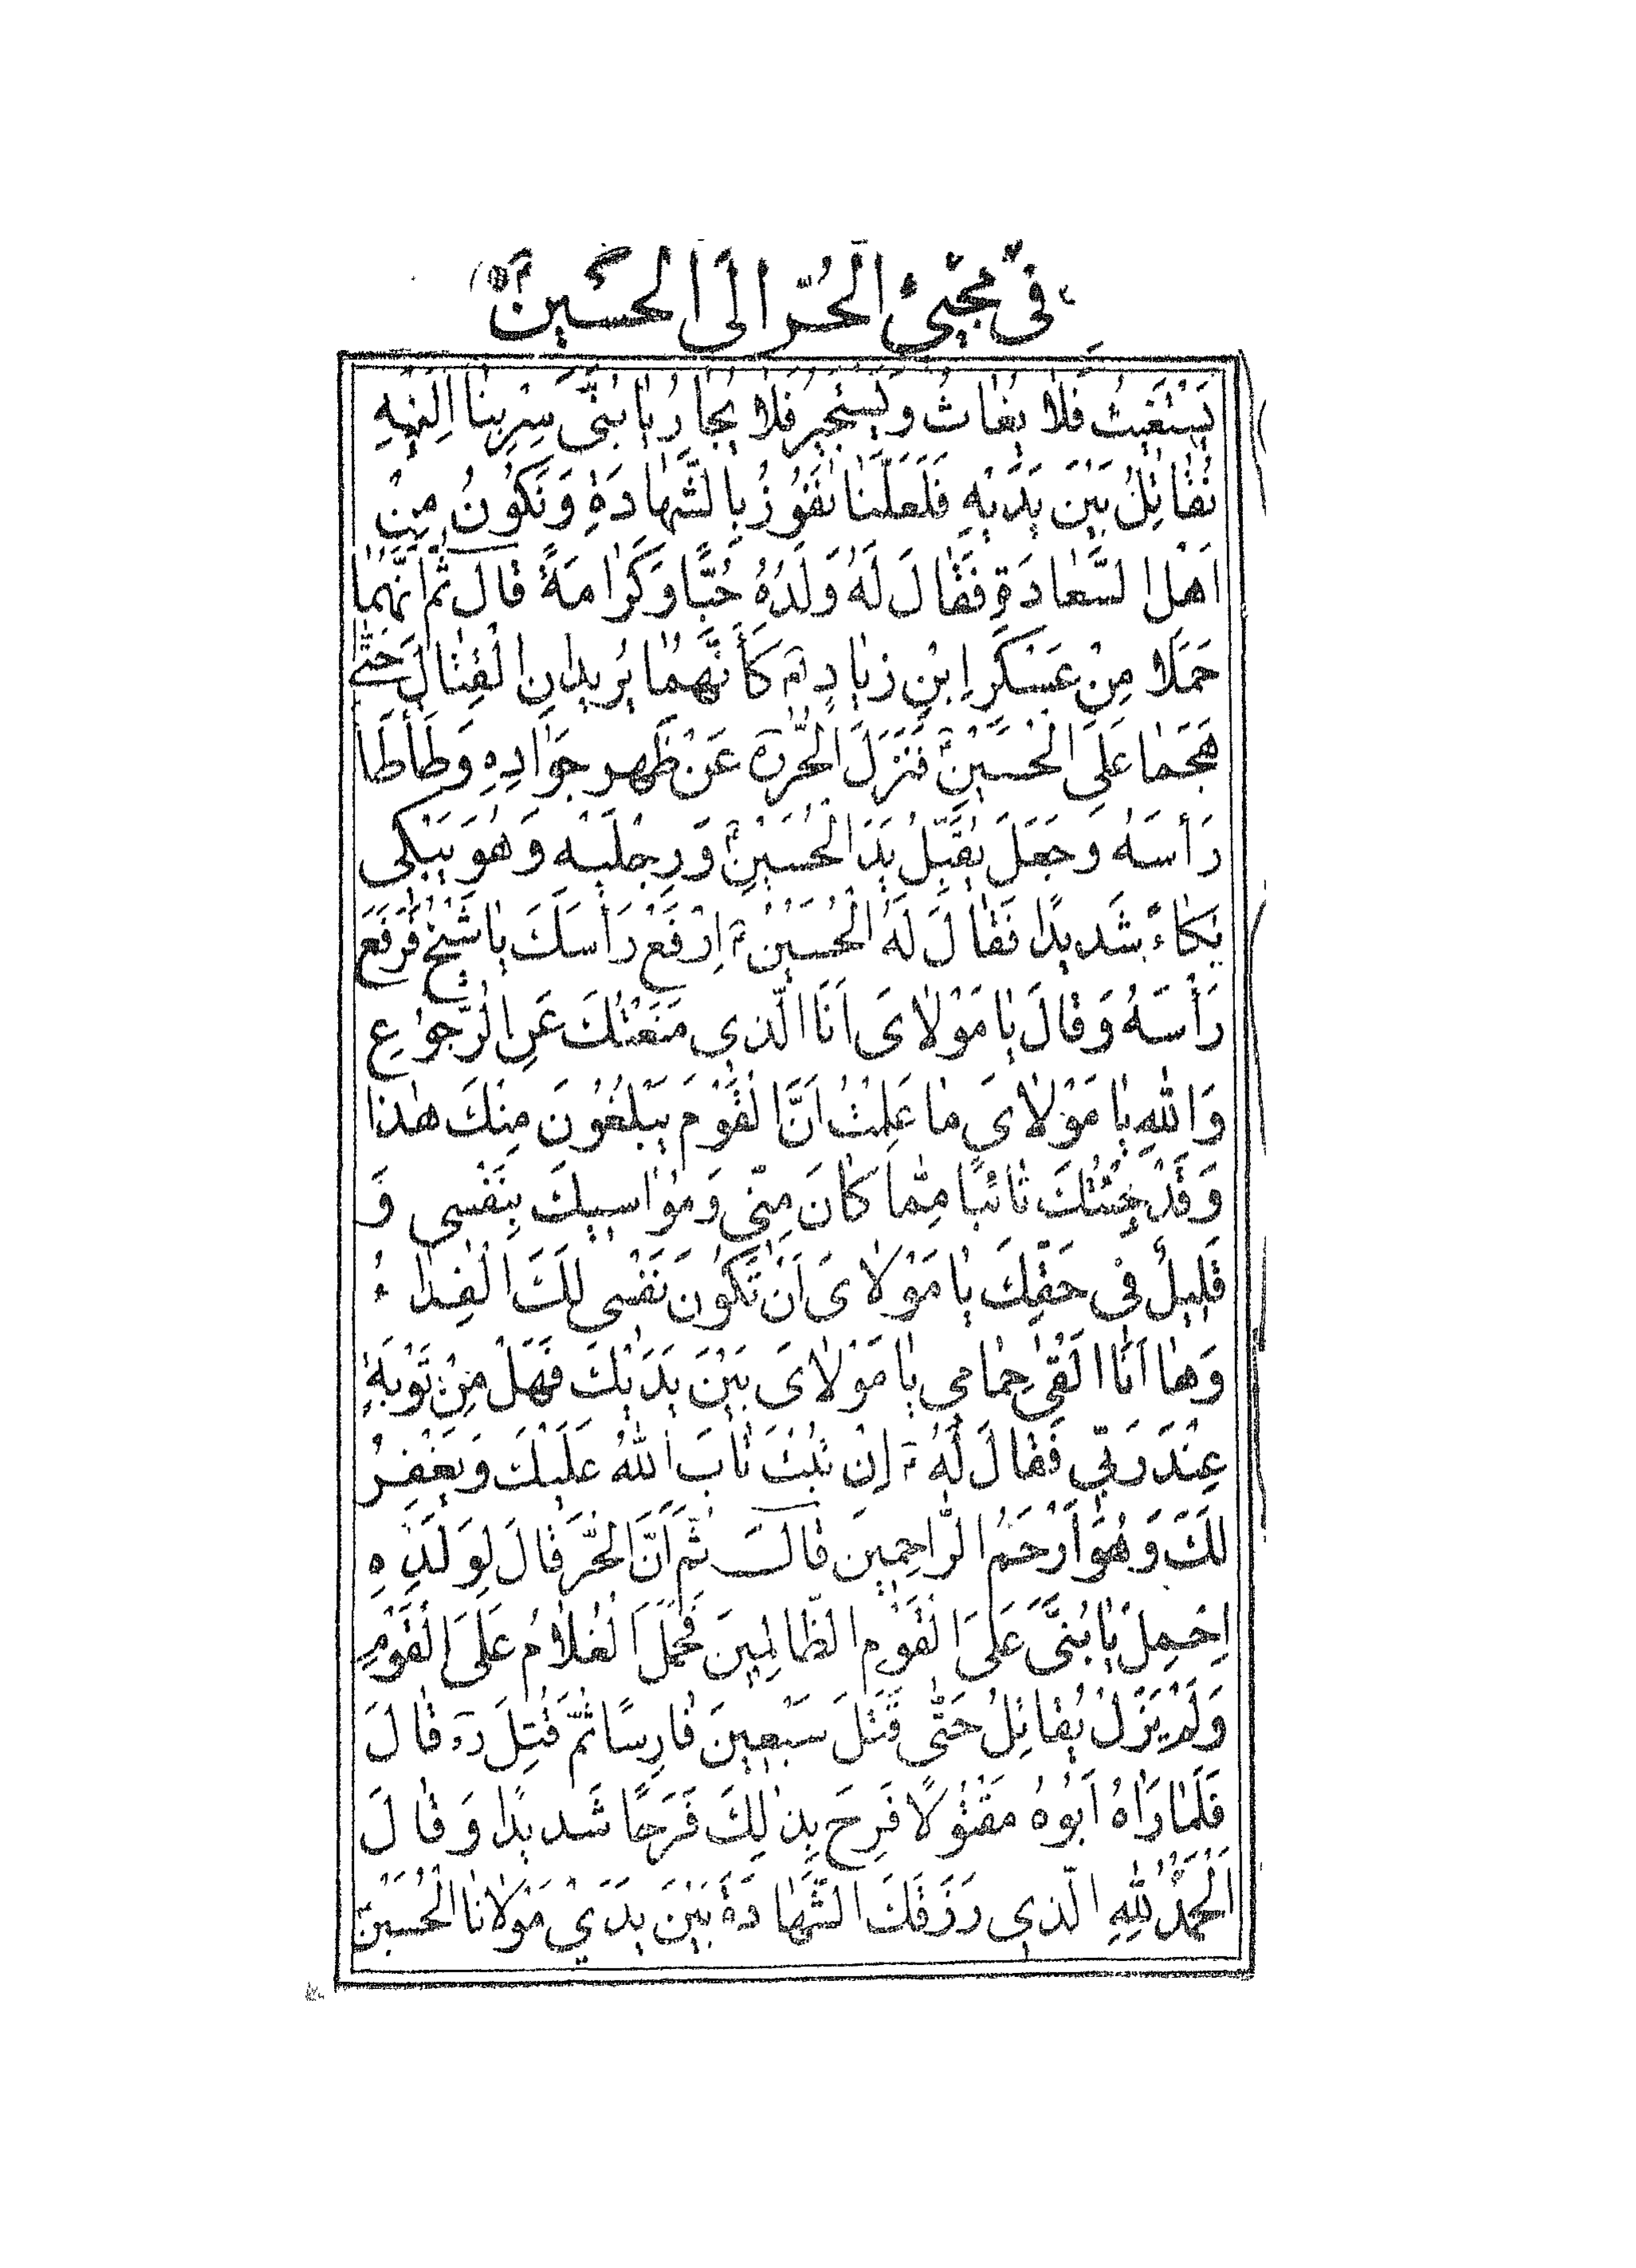 فِی مَجِيئِ الْحُرِّ اِلَی الْحُسَيْنِ ۴
يَسْتَغيثُ فَلاٰ يُغٰاثُ وَيَسْتَجيرُ فَلاٰ يُجٰارُ يٰا بُنَیَّ سِرْ بِنٰا اِلَيْهِ
نُقٰاتِلُ بَيْنَ يَدَيْهِ فَلَعَلَّنٰا نَفُوْزُ بِالشَّهٰادَةِ وَنَكُوْنُ مِنْ
اَهْلِ السَّعٰادَةِ فَقٰالَ لَهُ وَلَدُهُ حُبًّا وَكَرٰامَةً قٰالَ ثُمَّ اِنَّهُمٰا
حَمَلاٰ مِنْ عَسْكَرِ اِبْنِ زِيٰادٍ كَأَنَّهُمٰا يُرِيدٰانِ الْقِتٰالَ حَتّٰی
هَجَمٰا عَلَی الْحُسَيْنِ ۴ فَنَزَلَ الْحُرُّ عَنْ ظَهْرِ جَوٰادِهِ وَطَأْطَأَ
رَأْسَهُ وَجَعَلَ يُقَبِّلُ يَدَ الْحُسَيْنِ ۴ وَرِجْلَيْهِ وَهُوَ يَبْكی
بُكٰاءً شَديدًا فَقٰالَ لَهُ الْحُسَيْنُ ۴ اِرْفَعْ رَأْسَكَ يٰا شَيْخُ فَرَفَعَ
رَأْسَهُ وَقٰالَ يٰا مَوْلاٰیَ اَنَا الَّذي مَنَعْتُكَ عَنِ الرُّجُوْعِ
وَاللّٰهِ يٰا مَوْلاٰیَ مٰا عَلِمْتُ اَنَّ الْقَوْمَ يَبْلُغُوْنَ مِنْكَ هٰذٰا
وَقَدْ جِئْتُكَ تٰائِبًا مِمّٰا كٰانَ مِنّی وَمُوٰاسيكَ بِنَفْسی وَ
قَليلٌ فی حَقِّكَ يٰا مَوْلاٰیَ اَنْ تَكُوْنَ نَفْسی لَكَ الْفِدٰاءُ
وَهٰا اَنَا اَلْقیٰ حِمٰامی يٰا مَوْلاٰیَ بَيْنَ يَدَيْكَ فَهَلْ مِنْ تَوْبَةٍ
عِنْدَ رَبّی فَقٰالَ لَهُ ۴ اِنْ تُبْتَ تٰابَ اللّٰهُ عَلَيْكَ وَيَغْفِرُ
لَكَ وَهُوَ اَرْحَمُ الرّٰاحِمينَ قٰالَ ثُمَّ اَنَّ الْحُرَّ قٰالَ لِوَلَدِهِ
اِحْمِلْ يٰا بُنَیَّ عَلَی الْقَوْمِ الظّٰالِمينَ فَحَمَلَ الْغُلاٰمُ عَلَی الْقَوْمِ
وَلَمْ يَزَلْ يُقٰاتِلُ حَتّٰی قَتَلَ سَبْعينَ فٰارِسًا ثُمَّ قُتِلَ رَه قٰالَ
فَلَمّٰا رَاٰهُ اَبُوْهُ مَقْتُوْلاً فَرِحَ بِذٰلِكَ فَرَحًا شَديدًا وَقٰالَ
اَلْحَمْدُ لِلّٰهِ الَّذي رَزَقَكَ الشَّهٰادَةَ بَيْنَ يَدَيْ مَوْلاٰنَا الْحُسَيْنِ